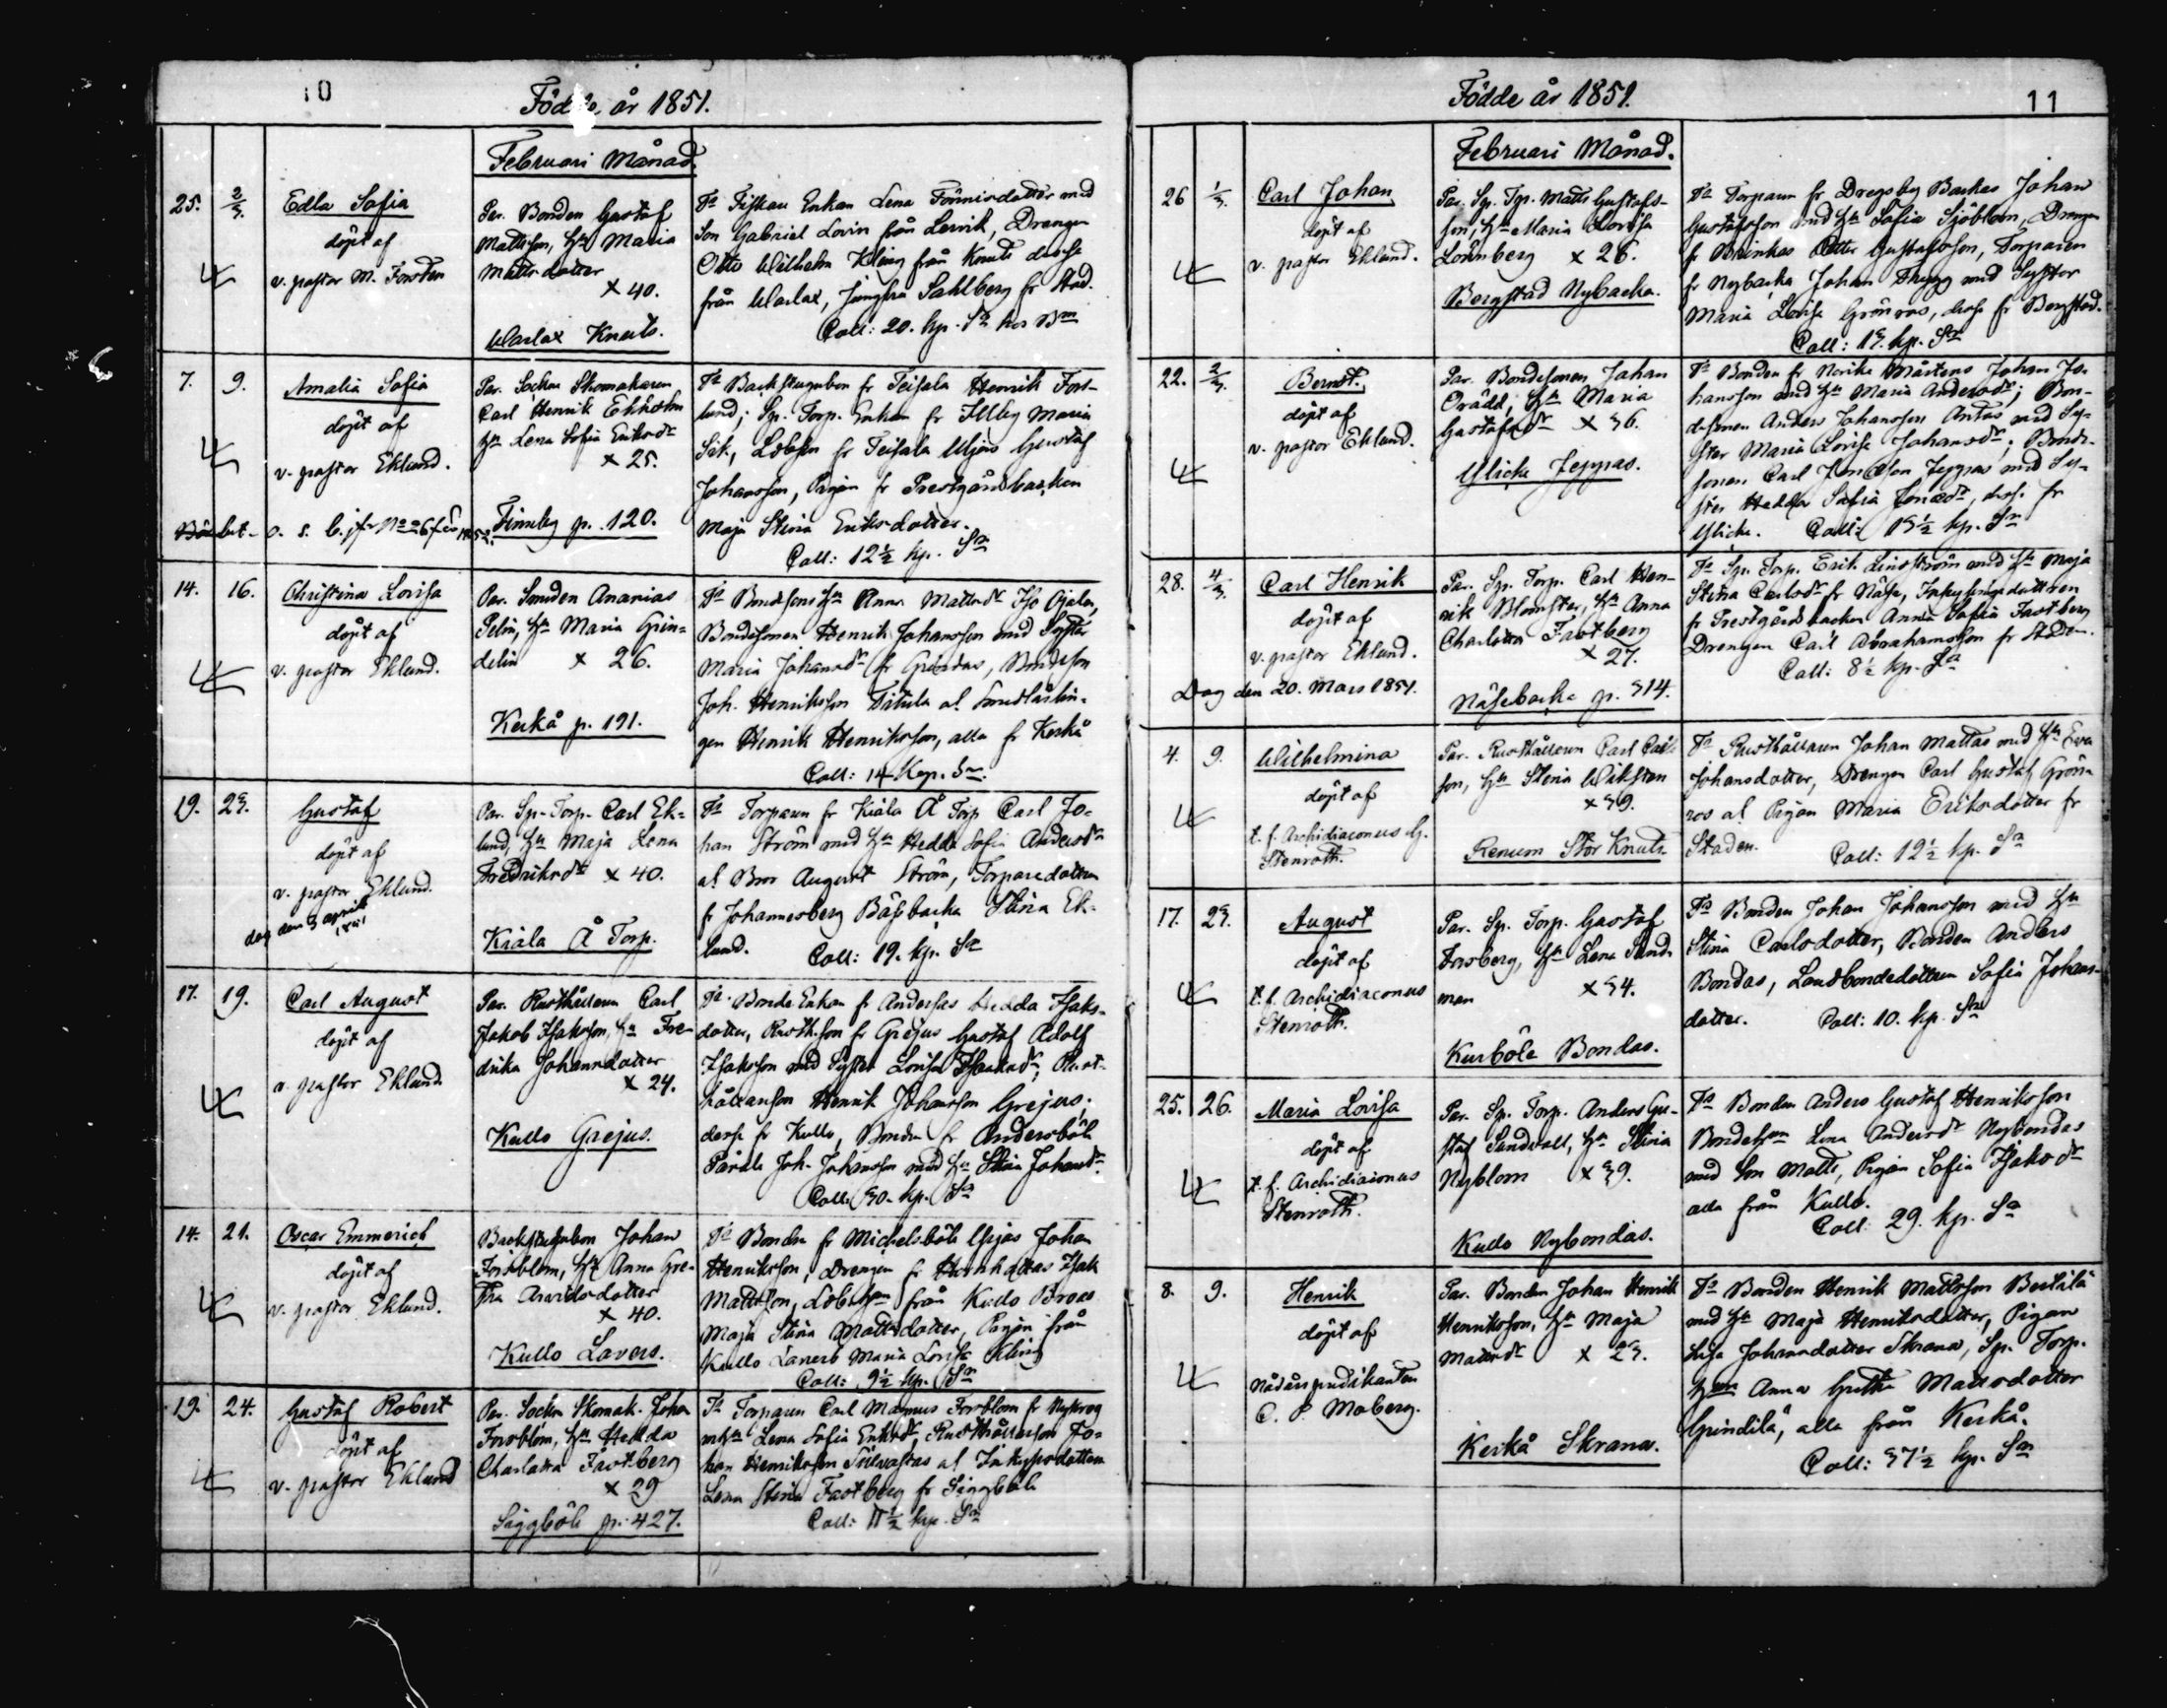 10
Födde år 1851.
Februari Månad.
25. 2/3. Edla Sofia
döpt af
v. pastor M. Forsten
Par. Bonden Gustaf
Mattsson, Hu Maria
Mattsdotter
x 40.
Warlax Knuts.
Enkan Lena
Son Gabriel Lovin från Lervik, Drengen
Otto Wilhelm Kling från Knuts
från Warlax, Jungfru Sahlberg fr Stad.
Coll: 20. kp. Sr
7. 9. Amalia Sofia
döpt af
v. pastor Eklund.
Par. Sockne Skomakaren
Carl Henrik Ekholm
Hu Lena Sofia Eriksdr
x 25.
Finnby p. 120.
Backstugubon fr Teisala Henrik Fors-
lund; Sp. Torp. Enkan fr Illby Maria
fr Teisala Uljens Gustaf
Johansson, Pigan fr Prestgårdsbacken
Maja Stina Eriksdotter.
Coll: 12 1/2 kp. Sr
14. 16. Christina Lovisa
döpt af
v. pastor Eklund.
Par. Smeden Ananias
Pelin, Hu Maria Grin-
delin x 26.
Kerkå p. 191.
Bondesons Hu Anna Mattsdr
Bondesonen Henrik Johansson med Syster
Maria Johansdr fr Grindas, Bondeson
Joh. Henriksson
Henrik Henriksson, alla fr Kerkå
Coll: 14 Kop. Sr.
19. 23. Gustaf
döpt af
v. pastor Eklund.
död den 3 april
1851
Par. Sp. Torp. Carl Ek-
lund, Hu Maja Lena
Fredriksdr x 40.
Kiala Å Torp.
Torparen fr Kiala Å Torp Carl Jo-
han Ström med Hu Hedda Sofia Andersdr
al Bror August Ström, Torparedottren
fr Johannesberg Stina Ek-
lund. Coll: 19. kp. Sr
17. 19. Carl August
döpt af
v. pastor Eklund
Par. Rusthållaren Carl
Jakob Isaksson, Hu Fre-
drika Johansdotter
x 24.
Kullo Grejus.
Bonde Enkan fr Andersas Hedda Isaks-
dotter, Rusth.son fr Grejus Gustaf Adolf
Isaksson med Syster Lovisa Isaksdr, Rust-
hållarson Henrik Johansson Grejus;
fr Kullo, Bonden fr Andersböle
Joh. Johansson med Hu Stina Johansdr
Coll: 30. kp. Sr
14. 21. Oscar Emmerich
döpt af
v. pastor Eklund.
Backstugubon Johan
Forsblom, Hu Anna Gre-
tha Arvidsdotter
x 40.
Kullo Lavers.
Bonden fr Michelsböle Uljas Johan
Henriksson, Drengen fr Isak
Mattsson, från Kullo Broas
Maja Stina Mattsdotter, Pigan från
Kullo Lavers Maria Lovisa Kling
Coll: 9 1/2 kp. Sr
19. 24. Gustaf Robert
döpt af
v. pastor Eklund
Par. Sockne Skomak. Johan
Forsblom, Hu Hedda
Charlotta Fastberg
x 29
Siggböle p. 427.
Torparen Carl Magnus Forsblom fr Nykrog
m Hu Lena Sofia Eriksdr, Rusthållarson Jo-
han Henriksson al
Lena Stina Fastberg fr Siggböle
Coll: 11 1/2 kp. Sr
Födde år 1851.
11
Februari Månad.
26 1/3. Carl Johan
döpt af
v. pastor Eklund.
Par. Sp. Tp. Matts Gustafs-
son, Hu Maria Lovisa
Lönnberg x 26.
Bergstad Nybacka.
Torparen fr Dregsby Backas Johan
Gustafsson med Hu Sofia Sjöblom, Drengen
fr Brinkas Petter Gustafsson, Torparen
fr Nybacka Johan med Syster
Maria Lovisa Grönros, fr Bergstad.
Coll: 13. kp. Sr
22. 2/3. Bernt.
döpt af
v. pastor Eklund.
Par. Bondesonen Johan
Orädd, Hu Maria
Gustafsdr x 36.
Ylicke Jeppas.
Bonden fr Norike Mårtens Johan Jo-
hansson med Hu Maria Andersdr; Bon-
desonen Anders Johansson Antas med Sy-
ster Maria Lovisa Johansdr; Bonde-
sonen Carl Jonasson Jeppas med Sy-
ster Hedda Sofia Jonasdr, fr
Ylicke. Coll: 13 1/2 kp. Sr
28. 4/3. Carl Henrik
döpt af
v. pastor Eklund.
Död den 20. Mars 1851.
Par. Sp. Torp. Carl Hen-
rik Blomster, Hu Anna
Charlotta Fastberg
x 27.
Näsebacka p. 314.
Sp. Torp. Erik Lindström med Hu Maja
Stina Carlsdr fr Näse, Inhysingedottren
fr Prestgårdsbacken Anna Sofia Fastberg
Drengen Carl Abrahamsson fr Staden.
Coll: 8 1/2 kp. Sr
4. 9. Wilhelmina
döpt af
t. f. Archidiaconus G.
Stenroth.
Par. Rusthållaren Carl Carls-
son, Hu Stina Wiksten
x 39.
Renum Stor Knuts.
Rusthållaren Johan Mattas med Hu Eva
Johansdotter, Drengen Carl Gustaf Grön-
ros al Pigan Maria Eriksdotter fr
Staden. Coll: 12 1/2 kp. Sr
17. 23. August
döpt af
t. f. Archidiaconus
Stenroth.
Par. Sp. Torp. Gustaf
Forsberg, Hu Lena Sand-
man x 34.
Kurböle Bondas.
Bonden Johan Johansson med Hu
Stina Carlsdotter, Bonden Anders
Bondas, Landbondedottren Sofia Johans-
dotter. Coll: 10. kp. Sr
25. 26. Maria Lovisa
döpt af
t. f. Archidiaconus
Stenroth.
Par. Sp. Torp. Anders Gu-
staf Sandvall, Hu Stina
Nyblom x 39.
Kullo Nybondas.
Bonden Anders Gustaf Henriksson
Lena Andersdr Nybondas
med Son Matts, Pigan Sofia Isaksdr
alla från Kullo.
Coll: 29. kp. Sr
8. 9. Henrik
döpt af
Nådårspredikanten
C. P. Moberg.
Par. Bonden Johan Henrik
Henriksson, Hu Maja
Mattsdr x 23.
Kerkå Skrana.
Bonden Henrik Mattsson Bertilä
med Hu Maja Henriksdotter, Pigan
Lisa Johansdotter Skrana, Sp. Torp.
Anna Gretha Mattsdotter
Grindilä, alla från Kerkå.
Coll: 37 1/2 kp. Sr